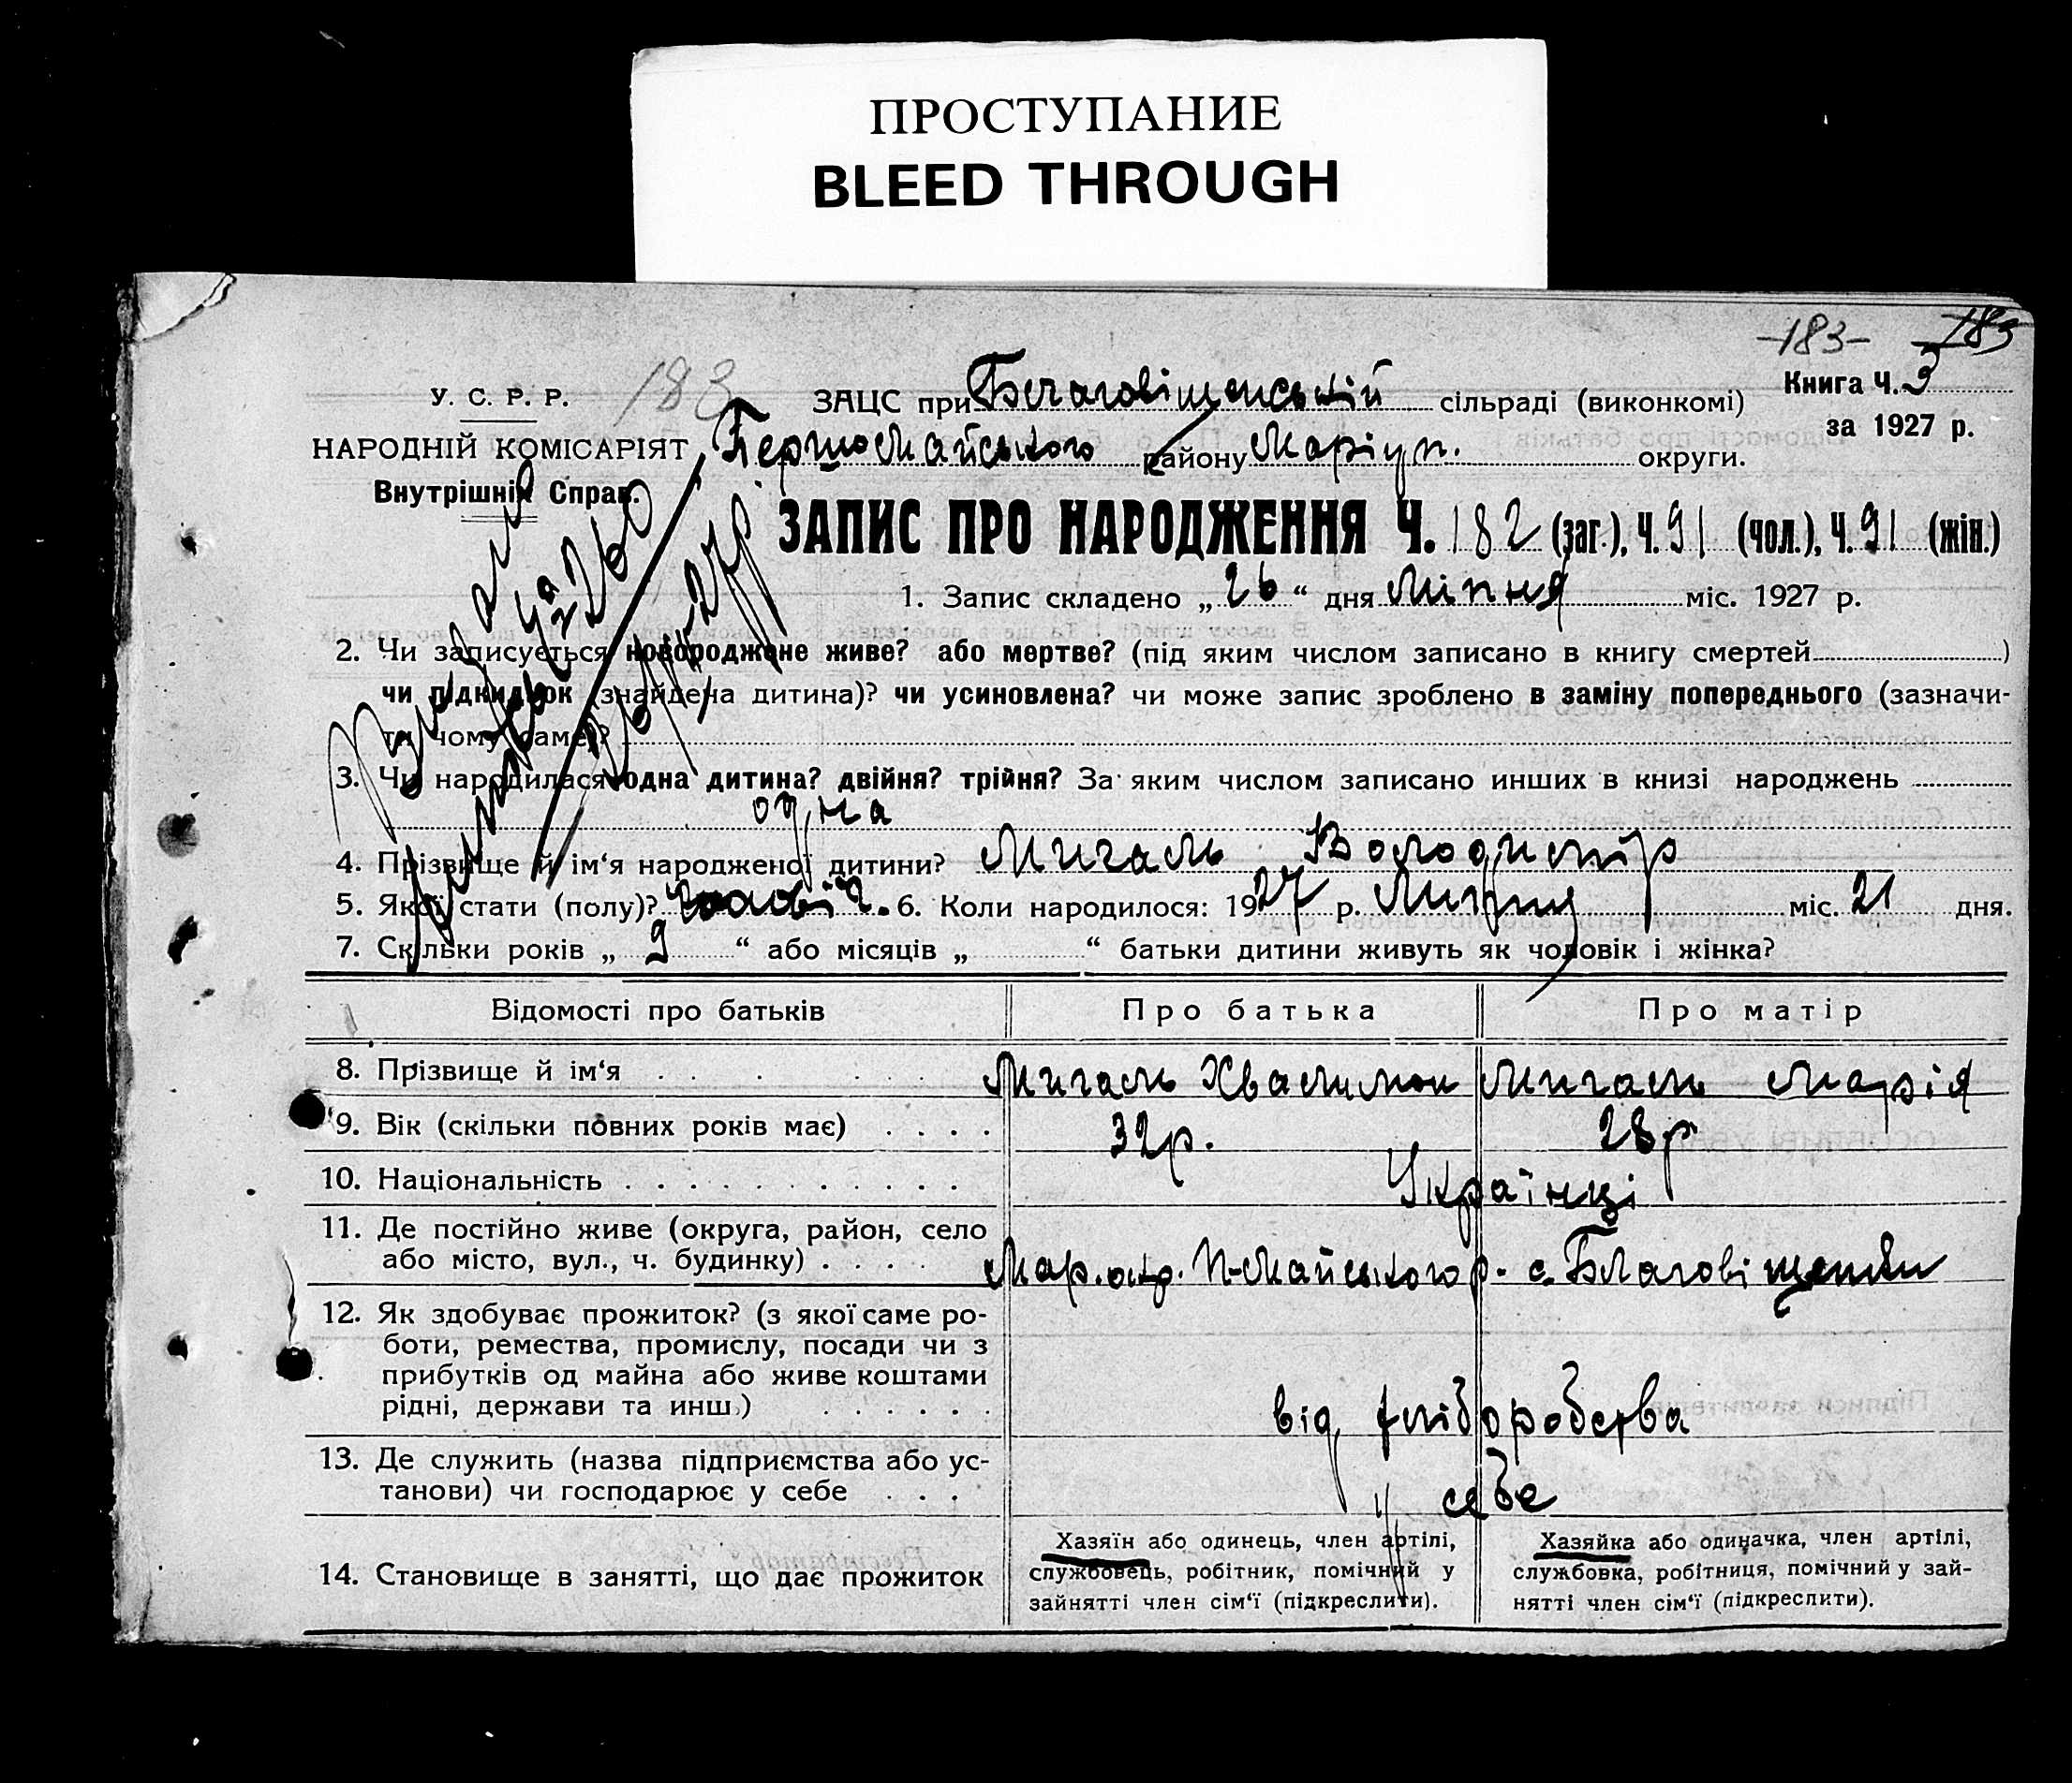 ПРОСТУПАНИЕ
BLEED THROUGH
-183- 183
У. С. Р. Р. 183 ЗАЦС при Благовіщенській сільраді (виконкомі) Книга Ч. 3
за 1927 р.
НАРОДНІЙ КОМІСАРІЯТ Першомайського району Маріуп. округи.
Внутрішніх Справ.
ЗАПИС ПРО НАРОДЖЕННЯ Ч. 182 (заг.), Ч. 91 (чол.), Ч. 91 (жін.)
1. Запис складено „ 26 “ дня Липня міс. 1927 р.
2. Чи записується новороджене живе? або мертве? (під яким числом записано в книгу смертей )
чи підкидьок (знайдена дитина)? чи усиновлена? чи може запис зроблено в заміну попереднього (зазначи-
ти чому саме)?
3. Чи народилася одна дитина? двійня? трійня? За яким числом записано инших в книзі народжень
одна
4. Прізвище й ім‘я народженої дитини? Мигаль Володимір
5. Якої стати (полу)? чоловіч. 6. Коли народилося: 1927 р. міс. 21 дня.
7. Скільки років „ 9 “ або місяців „ “ батьки дитини живуть як чоловік і жінка?
Відомості про батьків Про батька Про матір
8. Прізвище й ім‘я . . . . . . Мигаль Мигаль Марія
9. Вік (скільки повних років має) . . . . 32р. 28р
10. Національність . . . . . . . . . . . Українці
11. Де постійно живе (округа, район, село
або місто, вул., ч. будинку) . . . . Мар. окр. П-Майського р. с. Благовіщенки
12. Як здобуває прожиток? (з якої саме ро-
боти, ремества, промислу, посади чи з
прибутків од майна або живе коштами
рідні, держави та инш.) . . . . . . від хліборобства
13. Де служить (назва підприємства або ус-
танови) чи господарює у себе . . . у себе
14. Становище в занятті, що дає прожиток
Хазяїн або одинець, член артілі,
службовець, робітник, помічний у
зайнятті член сім‘ї (підкреслити).
Хазяйка або одиначка, член артілі,
службовка, робітниця, помічний у зай-
нятті член сім‘ї (підкреслити).